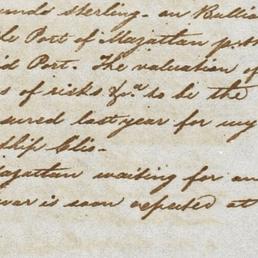 unds sterling - on Bullio
le Port of Mazatlan p. H
id Port. The valuation of
s of risks &ca to be the
sured last year for my
ship Clio -
azatlan waiting for an
war is soon expected at